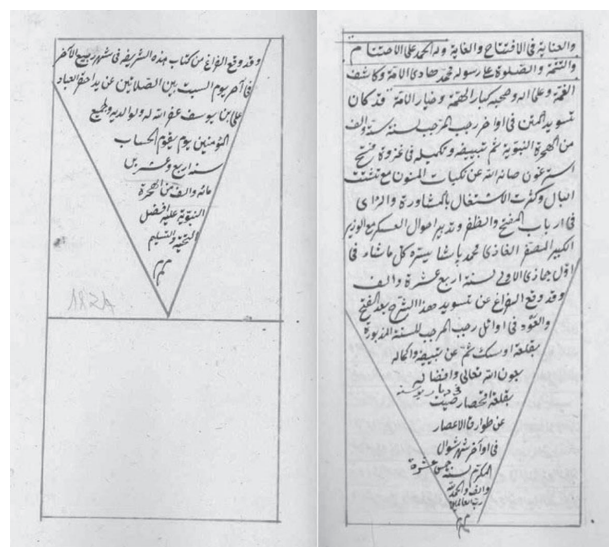 والعناية في الافتتاح والغاية وله الحمد على الاختتام
والتتمة والصلوة على رسوله محمد هادي الامة وكاشف
الغمة وعلى اله وصحبه كبار الحكمة وخيار الامة قد كان
تسويد المتن في اواخر رجب المرجب لسنة والف
من الهجرة النبوية ثم تبييضه وتكميله في غزوة فتح
استرغون صانه الله عن نكبات المنون مع تشتت
البال وكثرت الاشتغال بالمشاورة والراى
في ارباب الفتح والظفر وتدبير احوال العسكر مع الوزير
الكبير المظفر الغازى محمد باشا يسره كل ماشاء في
اول جمادى الاولى لسنة اربع عشرة والف
وقد وقع الفراغ عن تسويد هذا الشرح بعد الفتح
والعود في اوائل رجب المرجب للسنة المذبورة
بقلعة اوسك ثم عن تبييضه واكماله
بعون الله تعالى وافضاله
في ديار بوسنه
بقلعة اقحصار صينت
عن طوارق الاعصار
في اواخر شهر شوال
المكرم لسنة خمس عشرة
والف والحمد لله
رب العالمين
تم
وقد وقع الفراغ من كتاب هذه الشريفه في شهر ربيع الآخر
في آخر يوم السبت بين الصلاتين عن يد احقر العباد
على بن يوسف غفر الله له ولوالديه ولجميع
المؤمنين يوم يقوم الحساب
سنه اربع وعشرين
مائه والف من الهجرة
النبوية عليه افضل
التحية والتسليم
تم